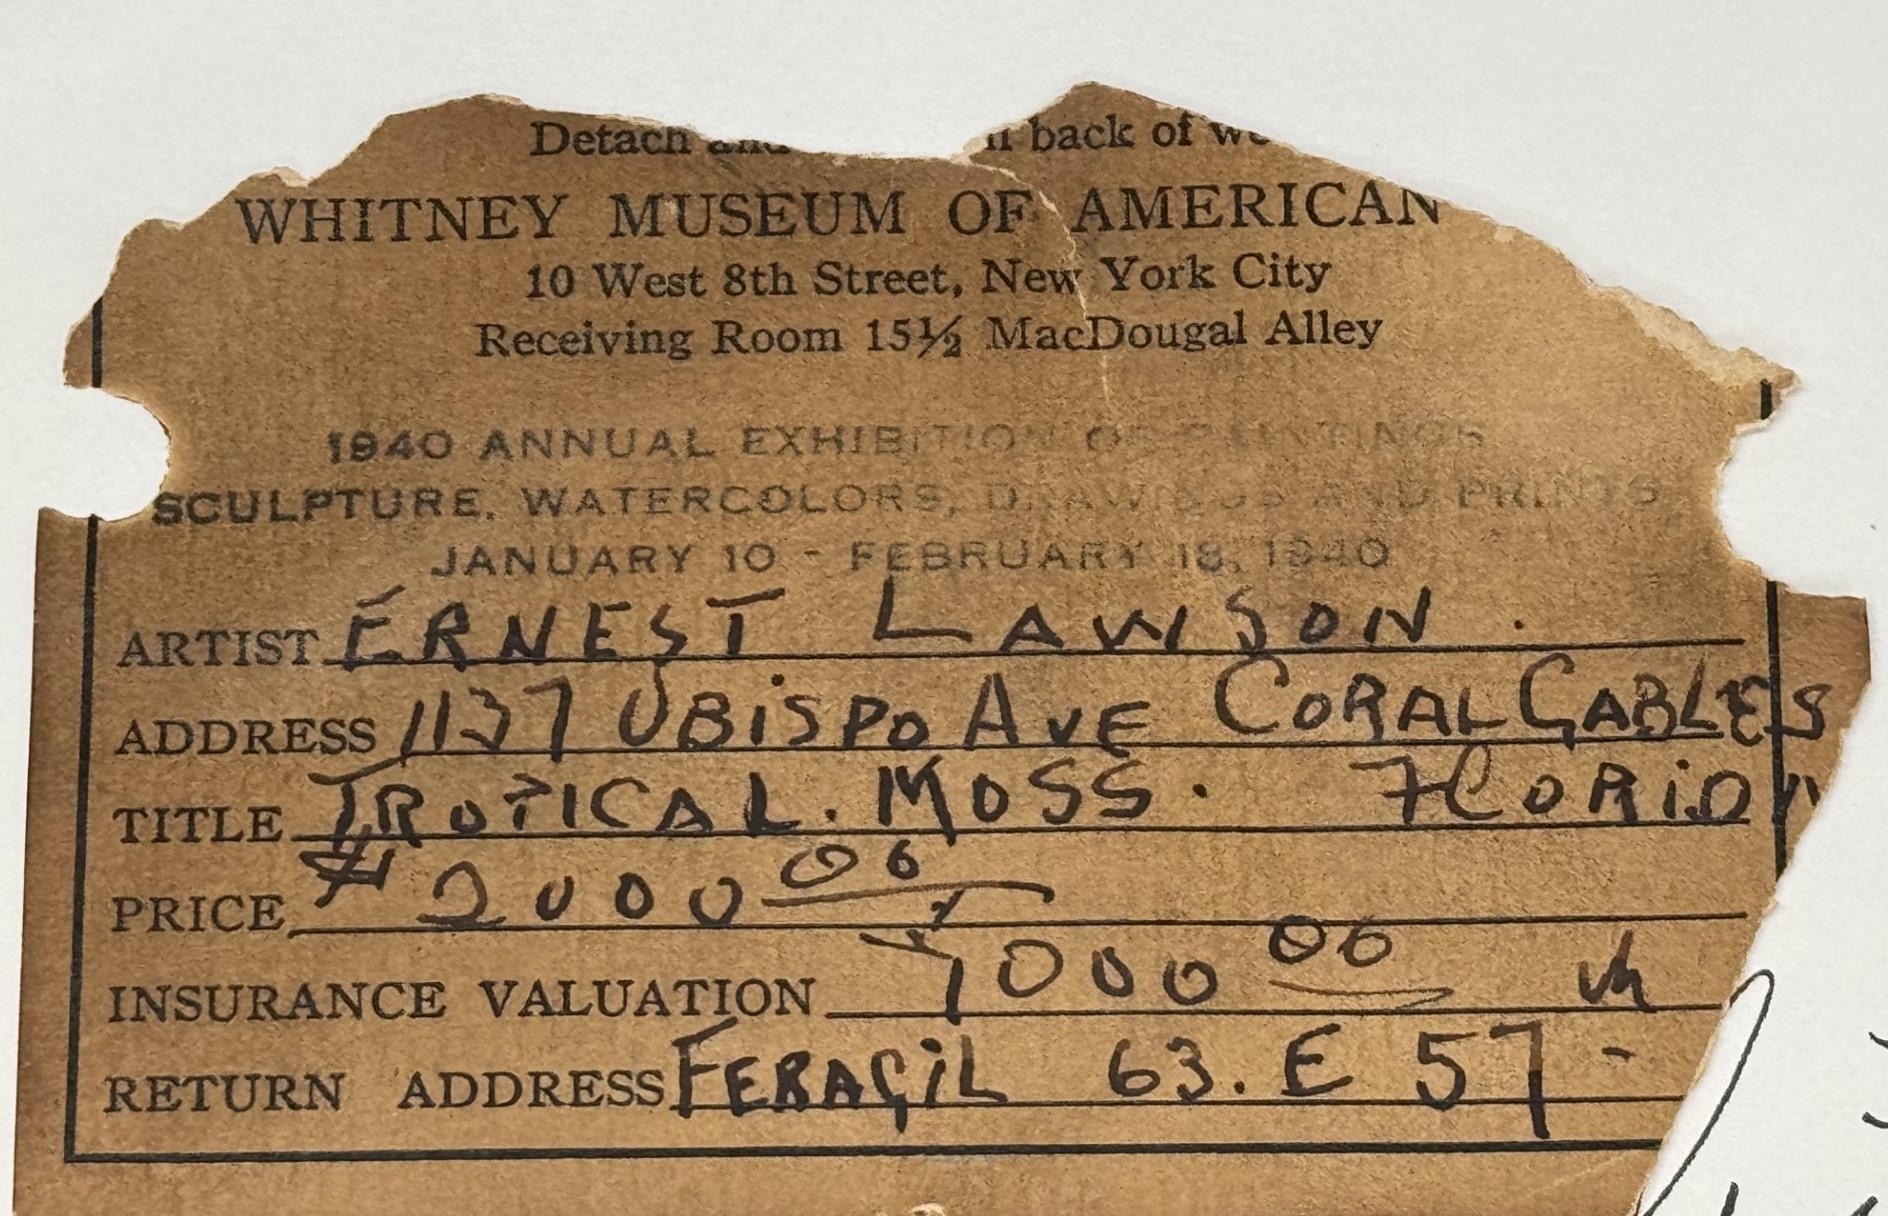 Detach and back of
WHITNEY MUSEUM OF AMERICAN
10 West 8th Street, New York City
Receiving Room 15½ MacDougal Alley
1940 ANNUAL EXHIBITION OF PAINTINGS
SCULPTURE, WATERCOLORS, DRAWINGS AND PRINTS
JANUARY 10 - FEBRUARY 18, 1940
ARTIST ERNEST LAWSON.
ADDRESS 1137 OBISPO AVE CORAL GABLES
TITLE TROPICAL. MOSS. FLORIDA
PRICE $2000 00
INSURANCE VALUATION 1000 00
RETURN ADDRESS FERAGIL 63. E 57-